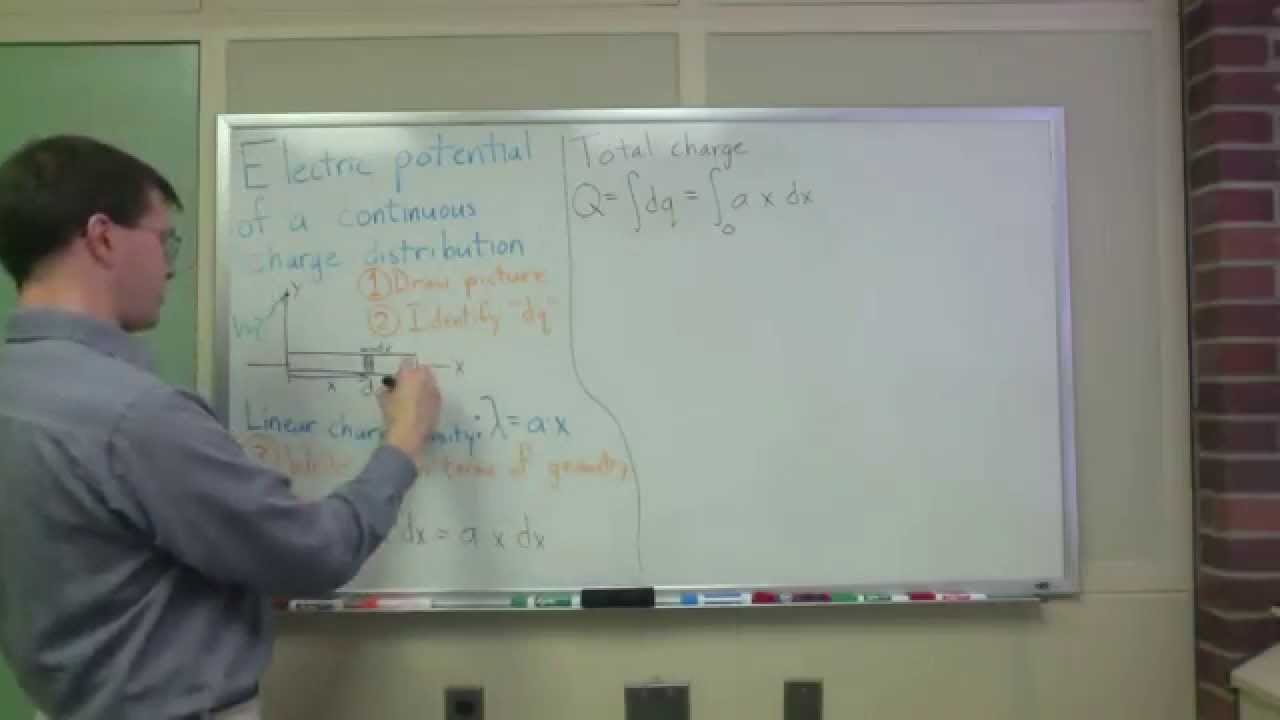 Electric potential
of a continuous
charge distribution
① Draw picture
② Identify "dq"
y
x
x
Linear
λ = a·x
terms of geometry
dx = a x dx
Total charge
Q = ∫dq = ∫₀ a x dx